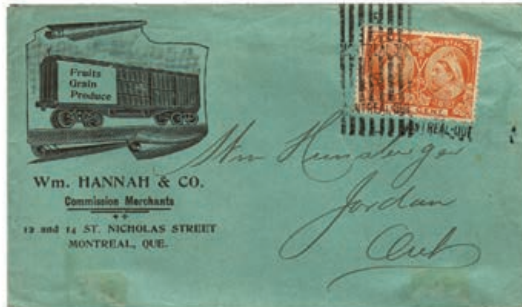 Fruits
Grain
Produce
Wm. HANNAH & CO.
Commission Merchants
12 and 14 ST. NICHOLAS STREET
MONTREAL, QUE.
MONTREAL-QUE
CENT
Wm Hunsberger
Jordan
Ont